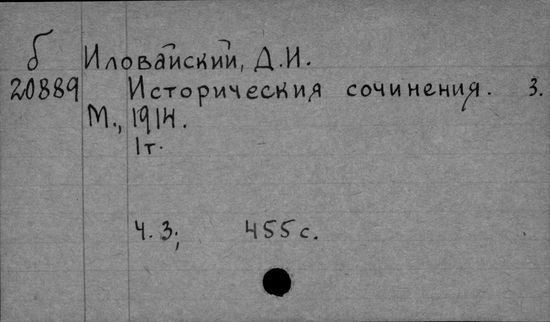 б Иловайский, Д.И.
20889 Историческия сочинения. 3.
М., 1914.
1т.
Ч. 3; 455 с.